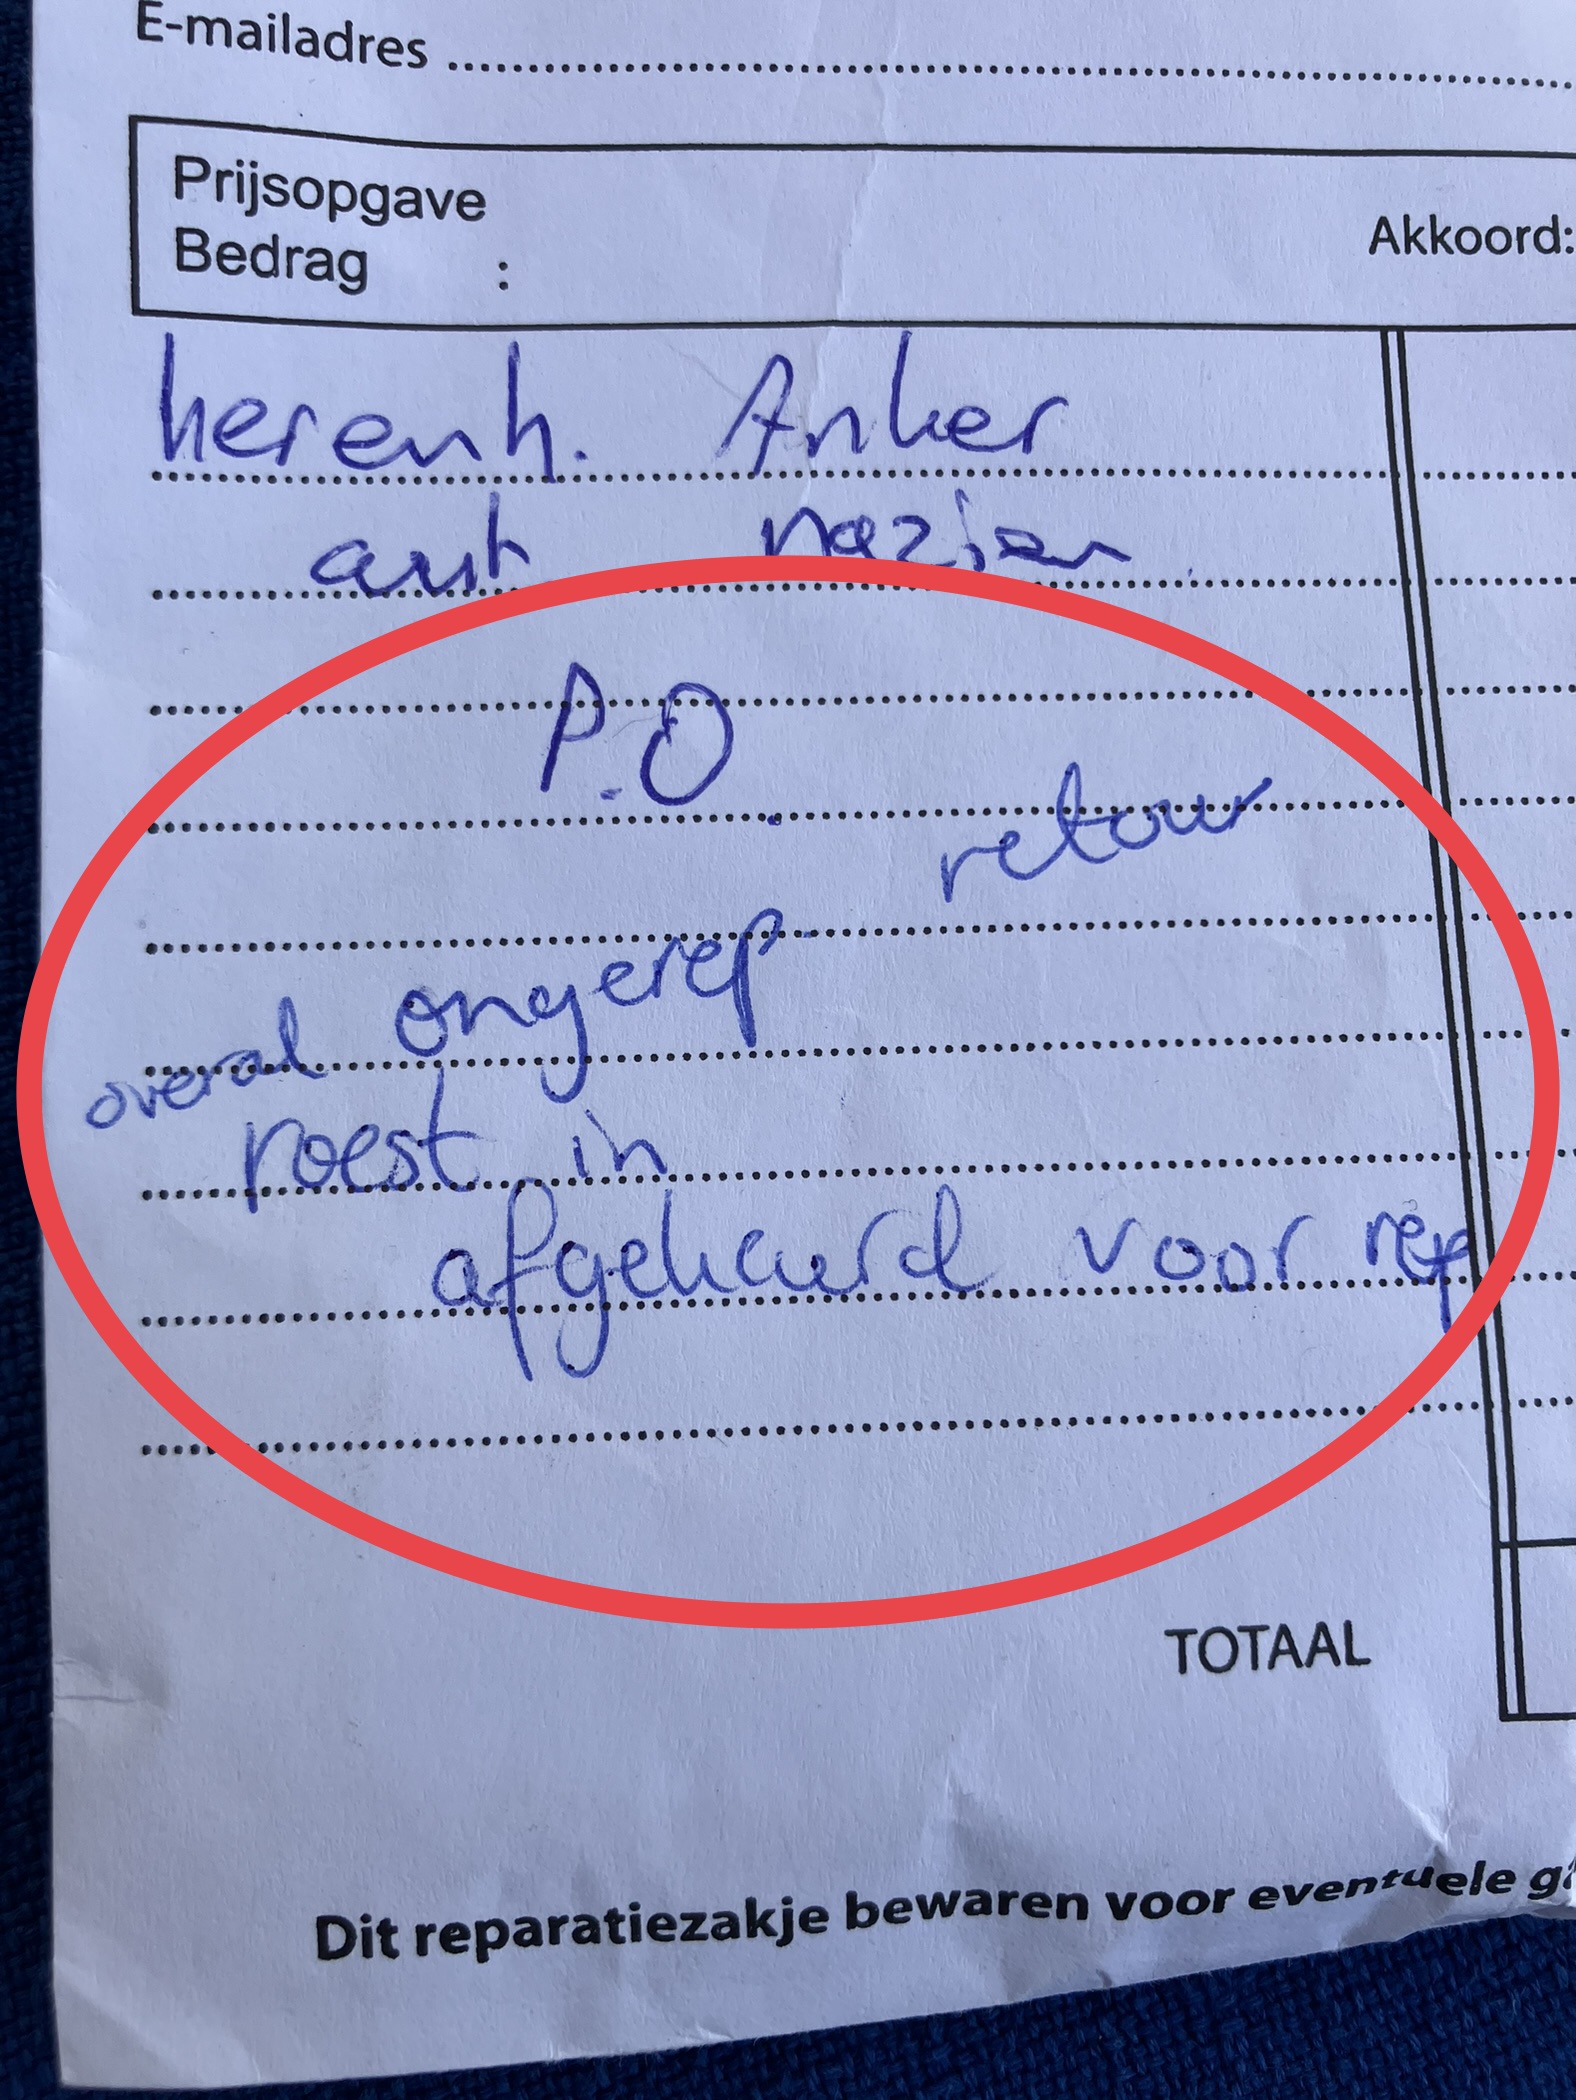 E-mailadres
Prijsopgave
Bedrag : Akkoord:
herenh. Anker
aut nazien
P.O.
retour
ongerep
overal
roest in
afgekeurd voor rep
TOTAAL
Dit reparatiezakje bewaren voor eventuele